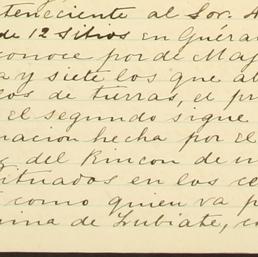 teneciente al Sor. A
de 12 Sitios en Guéra
conoce por de Maj
a y siete los que a
os de tierras, el pr
El segundo sigue
nacion hecha por El
del Rincon de
situados en los ce
como quien va p
ina de Zubiate, c